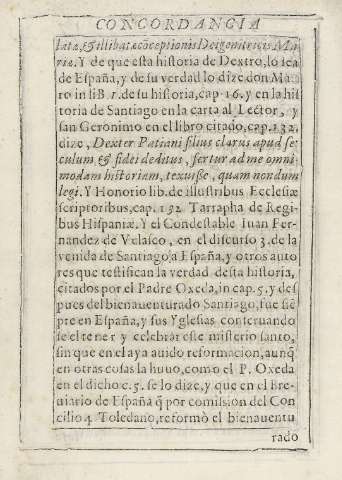 CONCORDANCIA
latæ, & illibatæ cōceptionis Deigenitricis Ma
riæ. Y de que esta historia de Dextro, lo sea
de España, y de su verdad lo dize don Mau
ro in liB. 1. de su historia, cap. 16. y en la his
toria de Santiago en la carta al Lector, y
san Geronimo en el libro citado, cap. 132.
dize, Dexter Patiani filius clarus apud se
culum & fidei deditus, fertur ad me omni
modam historiam, texuisse, quam nondum
legi. Y Honorio lib. de illustribus Ecclesiæ
scriptoribus, cap. 132. Tarrapha de Regi
bus Hispaniæ. Y el Condestable Iuan Fer-
nandez de Velasco, en el discurso 3. de la
venida de Santiago a España, y otros auto
res que testifican la verdad desta historia,
citados por el Padre Oxeda, in cap. 5. y des
pues del bienauenturado Santiago, fue siē
pre en España, y sus Yglesias conseruando
se el tener y celebrar este misterio santo,
sin que en el aya auido reformacion, aunq̄
en otras cosas la huuo, como el P. Oxeda
en el dicho c. 5. se lo dize, y que en el Bre-
uiario de España q̄ por comission del Con
cilio 4. Toledano, reformò el bienauentu
rado